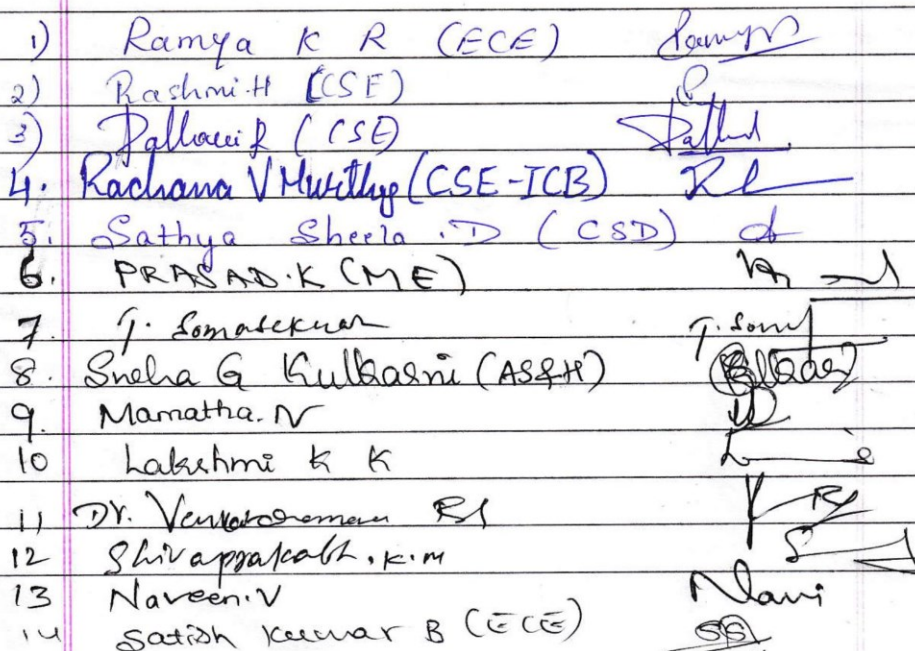 1) Ramya K R (ECE)
2) Rashmi.H (CSE)
3) Pallavi R (CSE)
4. Rachana V Murthy (CSE-ICB)
5. Sathya Sheela .D (CSD)
6. PRASAD.K (ME)
7. T. Somasekhar T. Som
8. Sneha G Kulkarni (AS&H)
9. Mamatha.N
10 Lakshmi K K
11 Dr. Venkataraman
12 Shivaprakash.K.M
13 Naveen.V Navi
14 Satish Kumar B (ECE) SS